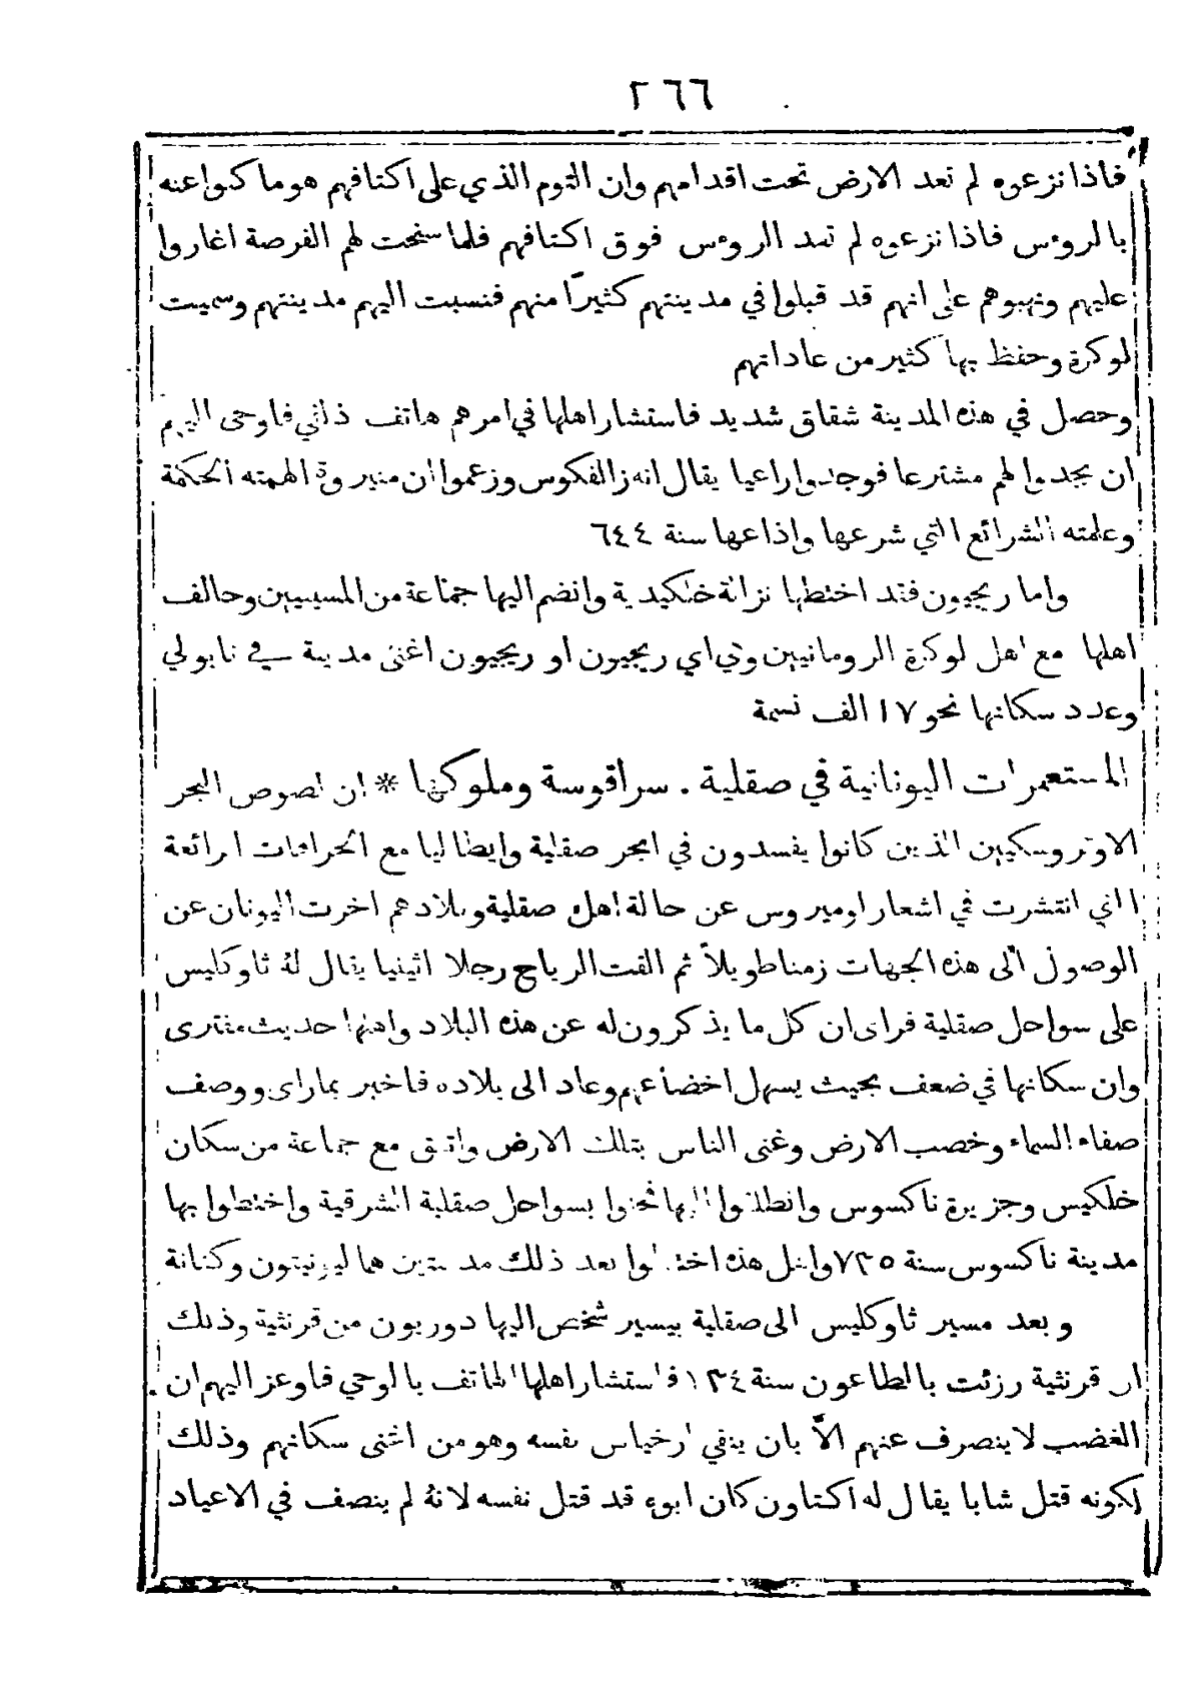 ٢٦٦
فاذا نزعوه لم تعد الارض تحت اقدامهم وان الثوم الذي على اكتافهم هو ما كنوا عنه
بالروءس فاذا نزعوه لم تعد الروءس فوق اكتافهم فلما سنحت لهم الفرصة اغاروا
عليهم ونهبوهم على انهم قد قبلوا في مدينتهم كثيرًا منهم فنسبت اليهم مدينتهم وسميت
لوكرة وحفظ بها كثير من عاداتهم
وحصل في هذه المدينة شقاق شديد فاستشار اهلها في امرهم هاتف ذلفي فاوحى اليهم
ان يجدوا لهم مشترعا فوجدوا راعيا يقال انه زالفكوس وزعموا ان منيروة الهمته الحكمة
وعلمته الشرائع التي شرعها واذاعها سنة ٦٤٤
واما ريجيون فقد اختطها نزالة خلكيدية وانضم اليها جماعة من المسينيين وحالف
اهلها مع اهل لوكرة الرومانيين وهي اي ريجيون او ريجيون اغنى مدينة في نابولي
وعدد سكانها نحو ١٧ الف نسمة
المستعمرات اليونانية في صقلية . سراقوسة وملوكها * ان لصوص البحر
الاوتروسكيين الذين كانوا يفسدون في ابحر صقلية وايطاليا مع الخرافات الرائعة
التي انتشرت في اشعار اوميروس عن حالة اهل صقلية وبلادهم اخرت اليونان عن
الوصول الى هذه الجهات زمنا طويلاً ثم القت الرياح رجلا اثينيا يقال لهُ ثاوكليس
على سواحل صقلية فراى ان كل ما يذكرون له عن هذه البلاد واهلها حديث مفترى
وان سكانها في ضعف بحيث يسهل اخضاعهم وعاد الى بلاده فاخبر بما راى ووصف
صفاء السماء وخصب الارض وغنى الناس بتلك الارض واتفق مع جماعة من سكان
خلكيس وجزيرة ناكسوس وانطلقوا اليها فحلوا بسواحل صقلية الشرقية واختطوا بها
مدينة ناكسوس سنة ٧٣٥ واهل هذه اختطوا بعد ذلك مدينتين هما ليونيتون وكتانة
وبعد مسير ثاوكليس الى صقلية بيسير شخص اليها دوريون من قرنثية وذلك
ان قرنثية رزئت بالطاعون سنة ١٣٤ فاستشار اهلها الهاتف بالوحي فاوعز اليهم ان
الغضب لا ينصرف عنهم الاَّ بان ينفي ارخياس نفسه وهو من اغنى سكانهم وذلك
لكونه قتل شابا يقال له اكتاون كان ابوه قد قتل نفسه لانهُ لم ينصف في الاعياد